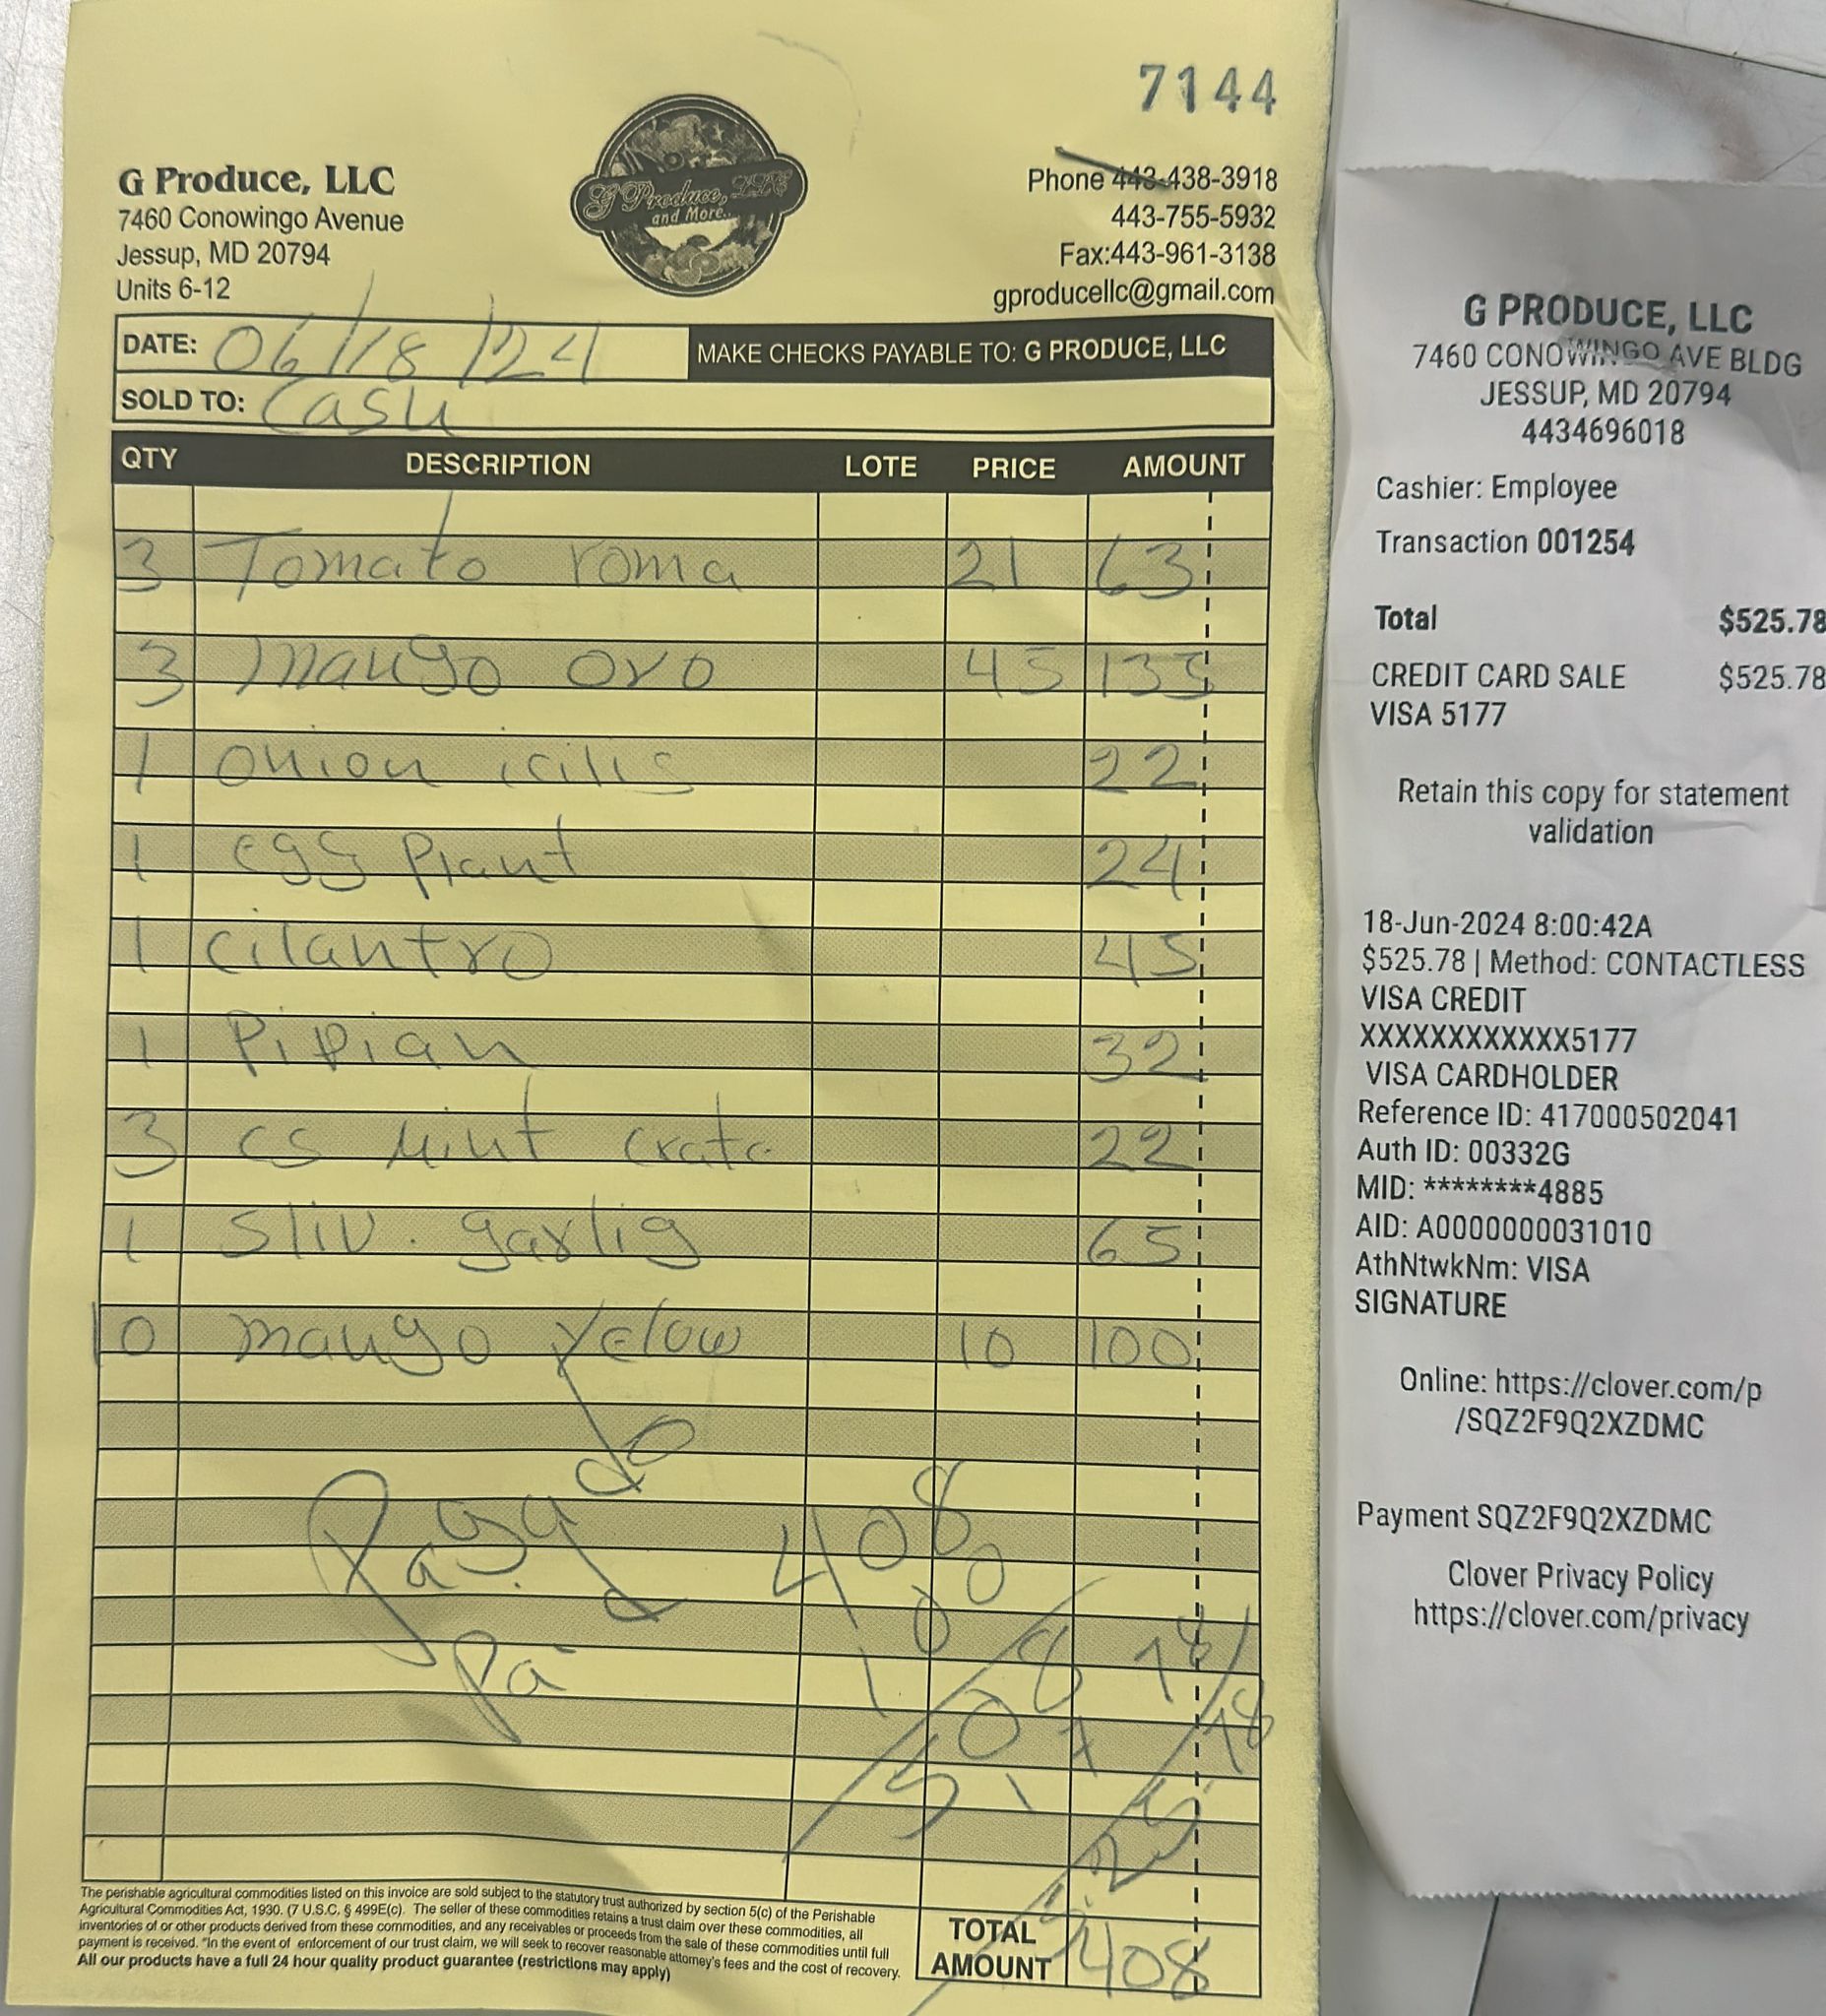 7144
G Produce, LLC
7460 Conowingo Avenue
Jessup, MD 20794
Units 6-12
G Produce, LLC
and More..
Phone 443-438-3918
443-755-5932
Fax:443-961-3138
gproducellc@gmail.com
DATE: 06/18/24 MAKE CHECKS PAYABLE TO: G PRODUCE, LLC
SOLD TO: Cash
QTY DESCRIPTION LOTE PRICE AMOUNT
3 Tomato roma 21 63
3 mango oro 45 135
1 onion 22
1 egg plant 24
1 cilantro 45
1 Pipian 32
3 cs mint crate 22
1 sliv. garlig 65
10 mango yelow 10 100
Pagado
Pa
408
100
508
17.78
525.78
The perishable agricultural commodities listed on this invoice are sold subject to the statutory trust authorized by section 5(c) of the Perishable
Agricultural Commodities Act, 1930. (7 U.S.C. § 499E(c). The seller of these commodities retains a trust claim over these commodities, all
inventories of or other products derived from these commodities, and any receivables or proceeds from the sale of these commodities until full
payment is received. "In the event of enforcement of our trust claim, we will seek to recover reasonable attorney's fees and the cost of recovery.
All our products have a full 24 hour quality product guarantee (restrictions may apply)
TOTAL
AMOUNT 408
G PRODUCE, LLC
7460 CONOWINGO AVE BLDG
JESSUP, MD 20794
4434696018
Cashier: Employee
Transaction 001254
Total $525.78
CREDIT CARD SALE $525.78
VISA 5177
Retain this copy for statement
validation
18-Jun-2024 8:00:42A
$525.78 | Method: CONTACTLESS
VISA CREDIT
XXXXXXXXXXXX5177
VISA CARDHOLDER
Reference ID: 417000502041
Auth ID: 00332G
MID: ********4885
AID: A0000000031010
AthNtwkNm: VISA
SIGNATURE
Online: https://clover.com/p
/SQZ2F9Q2XZDMC
Payment SQZ2F9Q2XZDMC
Clover Privacy Policy
https://clover.com/privacy